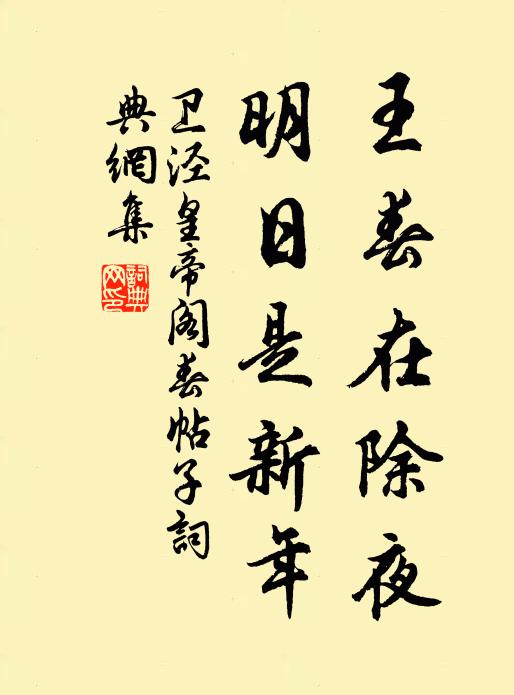 王春在除夜
明日是新年
卫泾皇帝阁春帖子詞
典網集
詞典
网印